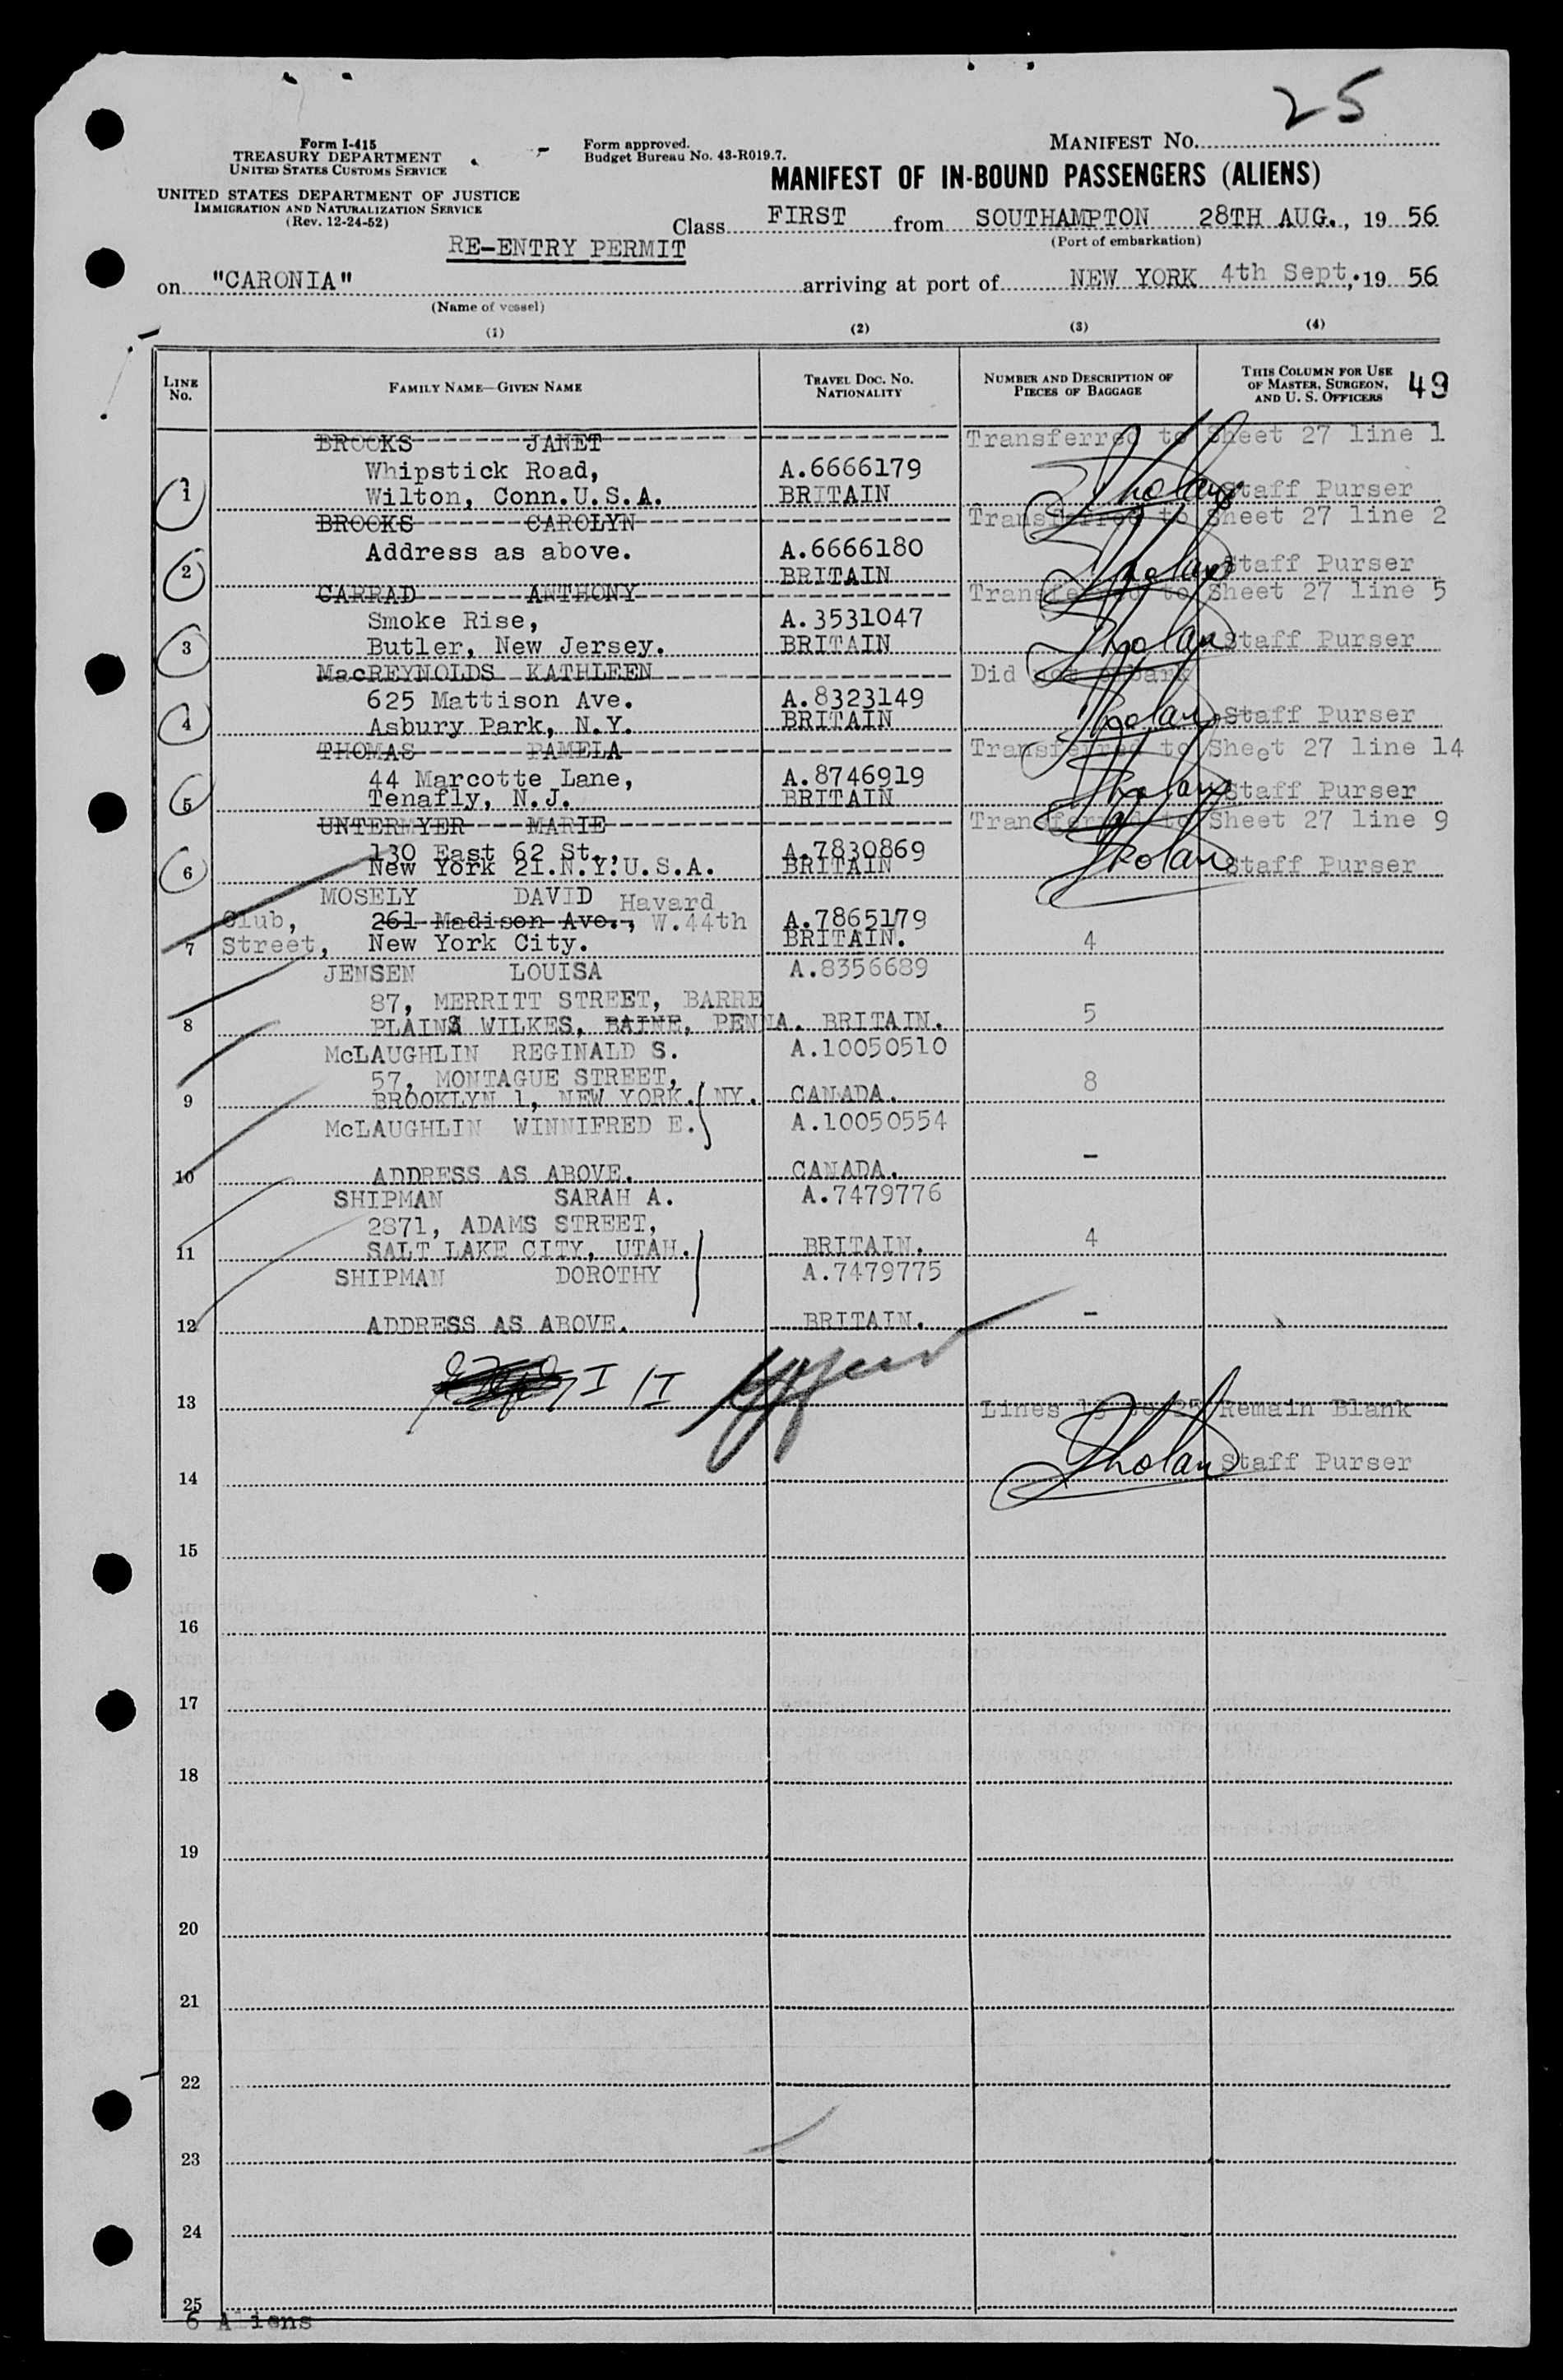 25
Form I-415
TREASURY DEPARTMENT
UNITED STATES CUSTOMS SERVICE
Form approved.
Budget Bureau No. 43-R019.7.
MANIFEST No.
UNITED STATES DEPARTMENT OF JUSTICE
IMMIGRATION AND NATURALIZATION SERVICE
(Rev. 12-24-52)
MANIFEST OF IN-BOUND PASSENGERS (ALIENS)
Class FIRST from SOUTHAMPTON 28TH AUG., 19 56
(Port of embarkation)
RE-ENTRY PERMIT
on "CARONIA" arriving at port of NEW YORK 4th Sept, 19 56
(Name of vessel)
(1) (2) (3) (4)
LINE No. FAMILY NAME—GIVEN NAME TRAVEL DOC. NO. NATIONALITY NUMBER AND DESCRIPTION OF PIECES OF BAGGAGE THIS COLUMN FOR USE OF MASTER, SURGEON, AND U. S. OFFICERS 49
BROOKS JANET Transferred to Sheet 27 line 1
Whipstick Road, A.6666179
1 Wilton, Conn.U.S.A. BRITAIN Staff Purser
BROOKS CAROLYN Transferred to Sheet 27 line 2
Address as above. A.6666180
2 BRITAIN Staff Purser
CARRAD ANTHONY Transferred to Sheet 27 line 5
Smoke Rise, A.3531047
3 Butler, New Jersey. BRITAIN Staff Purser
MacREYNOLDS KATHLEEN Did not embark
625 Mattison Ave. A.8323149
4 Asbury Park, N.Y. BRITAIN Staff Purser
THOMAS PAMELA Transferred to Sheet 27 line 14
44 Marcotte Lane, A.8746919
5 Tenafly, N.J. BRITAIN Staff Purser
UNTERMYER MARIE Transferred to Sheet 27 line 9
130 East 62 St., A.7830869
6 New York 21.N.Y.U.S.A. BRITAIN Staff Purser
MOSELY DAVID Havard
Club, 261 Madison Ave., W.44th A.7865179
7 Street, New York City. BRITAIN. 4
JENSEN LOUISA A.8356689
87, MERRITT STREET, BARRE
8 PLAINS WILKES, BAINE, PENNA. BRITAIN. 5
McLAUGHLIN REGINALD S. A.10050510
57, MONTAGUE STREET, 8
9 BROOKLYN 1, NEW YORK. NY. CANADA.
McLAUGHLIN WINNIFRED E. A.10050554
10 ADDRESS AS ABOVE. CANADA. -
SHIPMAN SARAH A. A.7479776
2871, ADAMS STREET,
11 SALT LAKE CITY, UTAH. BRITAIN. 4
SHIPMAN DOROTHY A.7479775
12 ADDRESS AS ABOVE. BRITAIN. -
13 Lines 13 to 25 Remain Blank
14 Staff Purser
15
16
17
18
19
20
21
22
23
24
25
6 Aliens